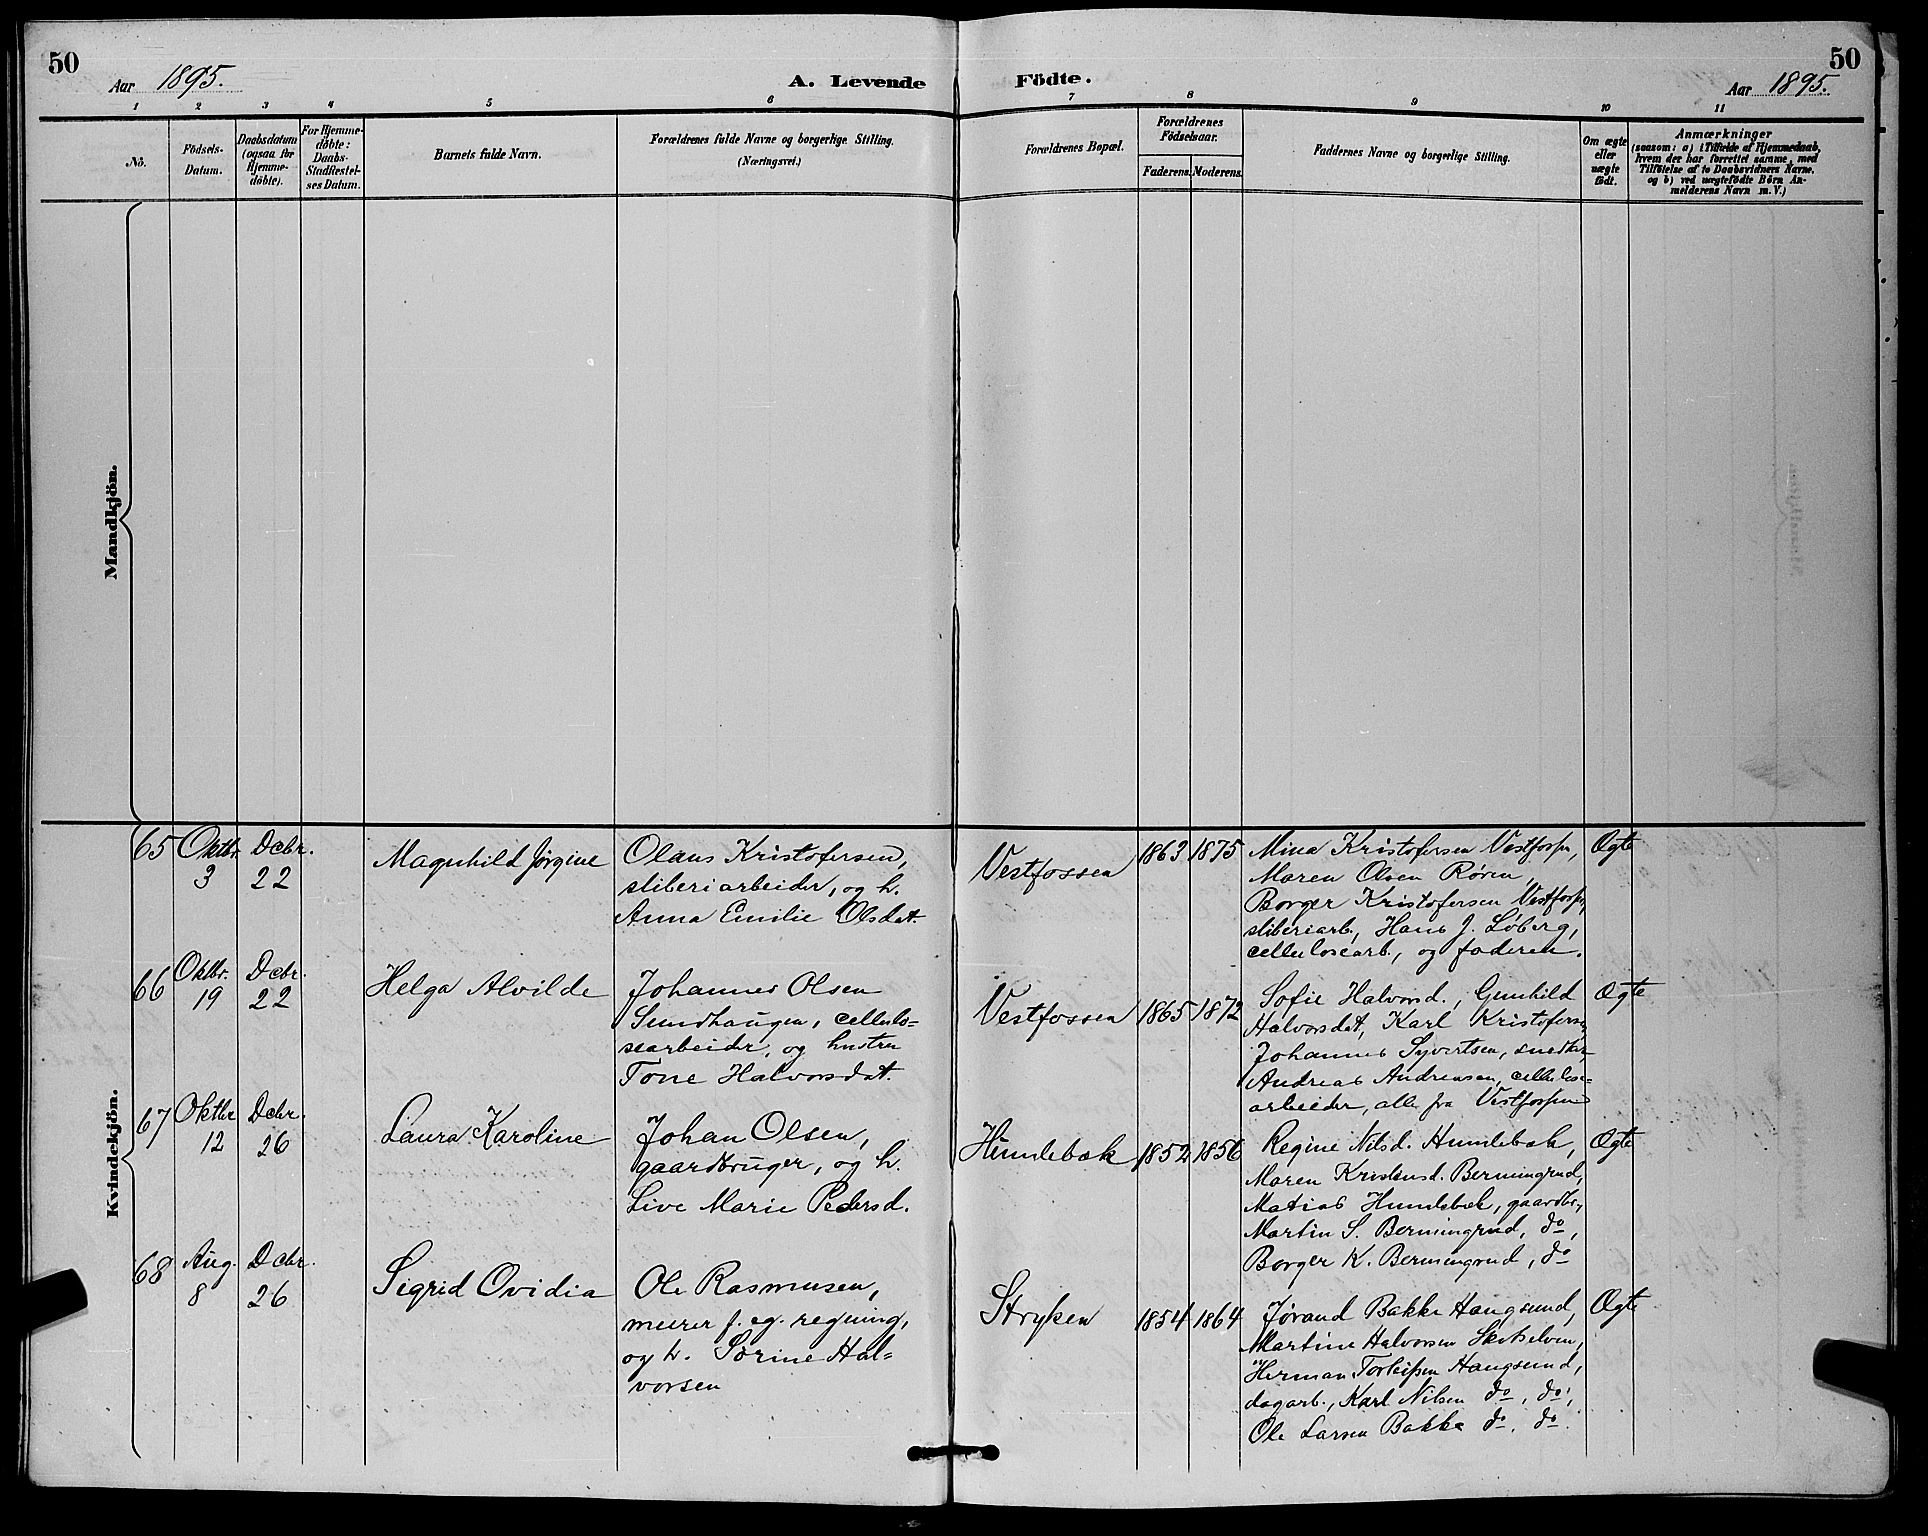 50
Aar 1895.
A. Levende Födte.
Aar 1895.
50
1 2 3 4 5 6 7 8 9 10 11
No.
Födsels-Datum.
Daabsdatum (ogsaa for Hjemme-döbte).
For Hjemme-döbte: Daabs-Stadfæstel-ses Datum.
Barnets fulde Navn.
Forældrenes fulde Navne og borgerlige Stilling.
(Næringsvei.)
Forældrenes Bopæl.
Forældrenes Födselsaar.
Faderens. Moderens.
Faddernes Navne og borgerlige Stilling.
Om ægte eller uægte födt.
Anmærkninger
(saasom: a) i Tilfælde af Hjemmedaab,
hvem der har forrettet samme, med
Tilföielse af to Daabsvidners Navne.
og b) ved uægtefödte Börn An-
melderens Navn m. V.)
Mandkjön.
Kvindekjön.
65
Oktbr. 3
Dcbr. 22
Magnhild Jørgine
Olaus Kristofersen,
sliberiarbeider, og h.
Anna Emilie Olsdat.
Vestfossen
1863 1875
Mina Kristofersen Vestfossen,
Maren Olsen Røren,
Borger Kristofersen Vestfossen,
sliberiarb., Hans J. Løberg,
cellulosearb., og faderen.
Ægte
66
Oktbr. 19
Dcbr. 22
Helga Alvilde
Johannes Olsen
Sundhaugen, cellulo-
searbeider, og hustru
Tone Halvorsdat.
Vestfossen
1865 1872
Sofie Halvorsd., Gunhild
Halvorsdat, Karl Kristofersen
Johannes Syvertsen, snedker
Andreas Andreasen, cellulose-
arbeider, alle fra Vestfossen
Ægte
67
Oktbr 12
Dcbr. 26
Laura Karoline
Johan Olsen,
gaardbruger, og h.
Live Marie Pedersd.
Humlebæk
1852 1856
Regine Nilsd. Humlebæk,
Maren Kristensd. Berningrud,
Matias Humlebæk, gaardbr.,
Martin S. Berningrud, do,
Borger K. Berningrud, do
Ægte
68
Aug. 8
Dcbr. 26
Sigrid Ovidia
Ole Rasmusen,
murer f. eg. regning,
og h. Sørine Hal-
vorsen
Stryken
1854 1864
Jørand Bakke Haugsund,
Martine Halvorsen Skotselven,
Herman Torleifsen Haugsund,
dagarb., Karl Nilsen do, do,
Ole Larsen Bakke do, do.
Ægte